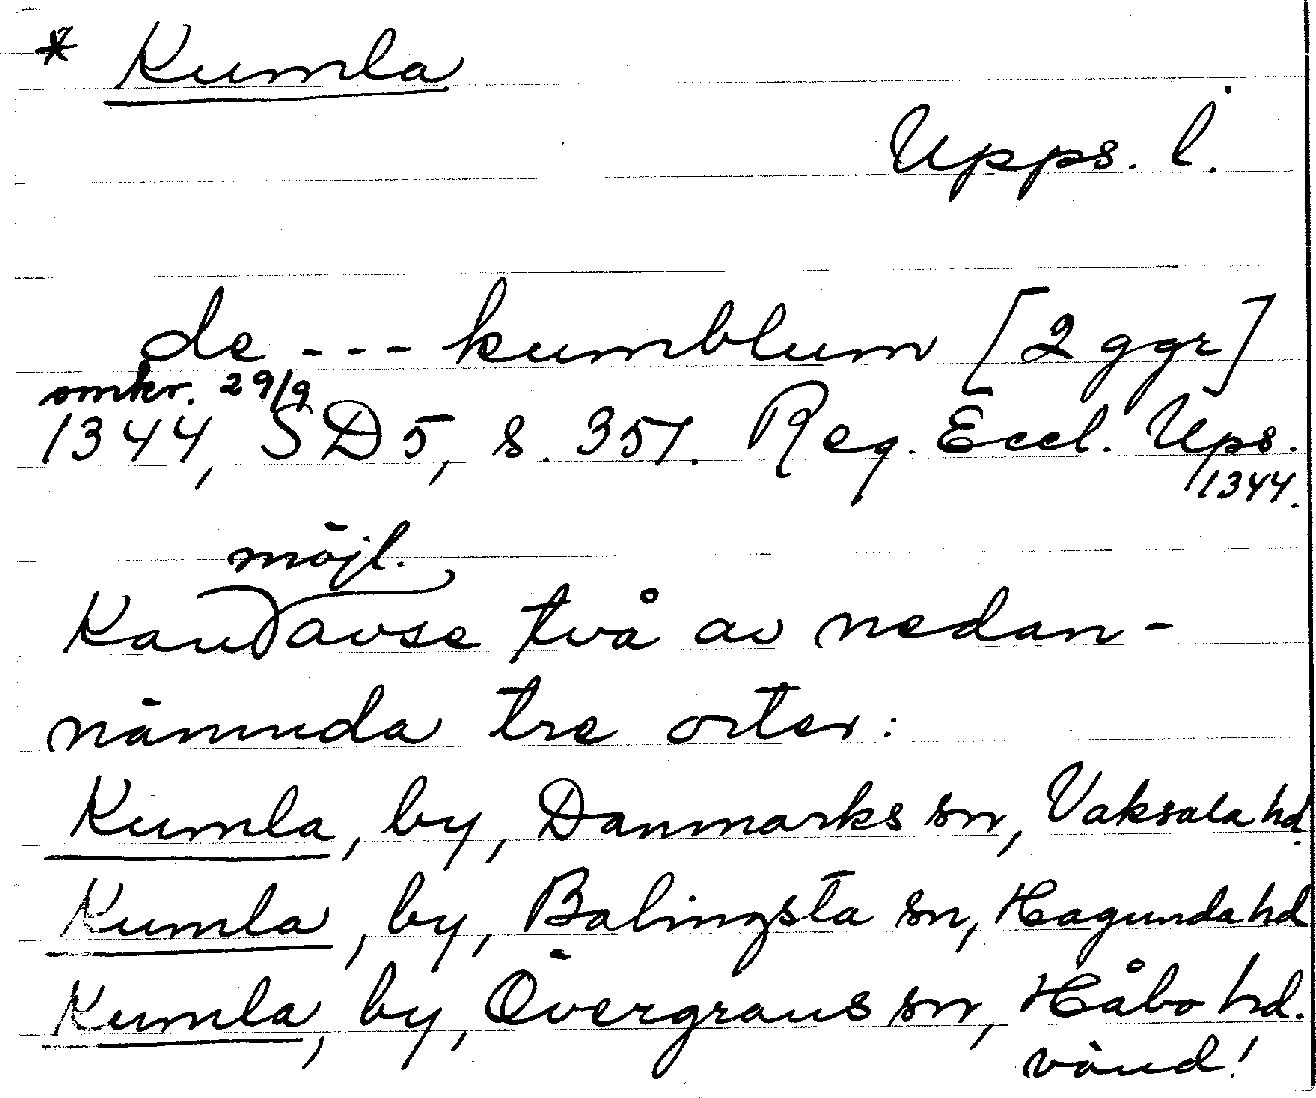 * Kumla
Upps. l.
de --- kumblum [2 ggr]
omkr. 29/9
1344, SD 5, s. 351. Reg. Eccl. Ups.
1344.
möjl.
Kan avse två av nedan-
nämnda tre orter:
Kumla, by, Danmarks sn, Vaksala hd.
Kumla, by, Balingsta sn, Hagunda hd
Kumla, by, Övergrans sn, Håbo hd.
vänd!